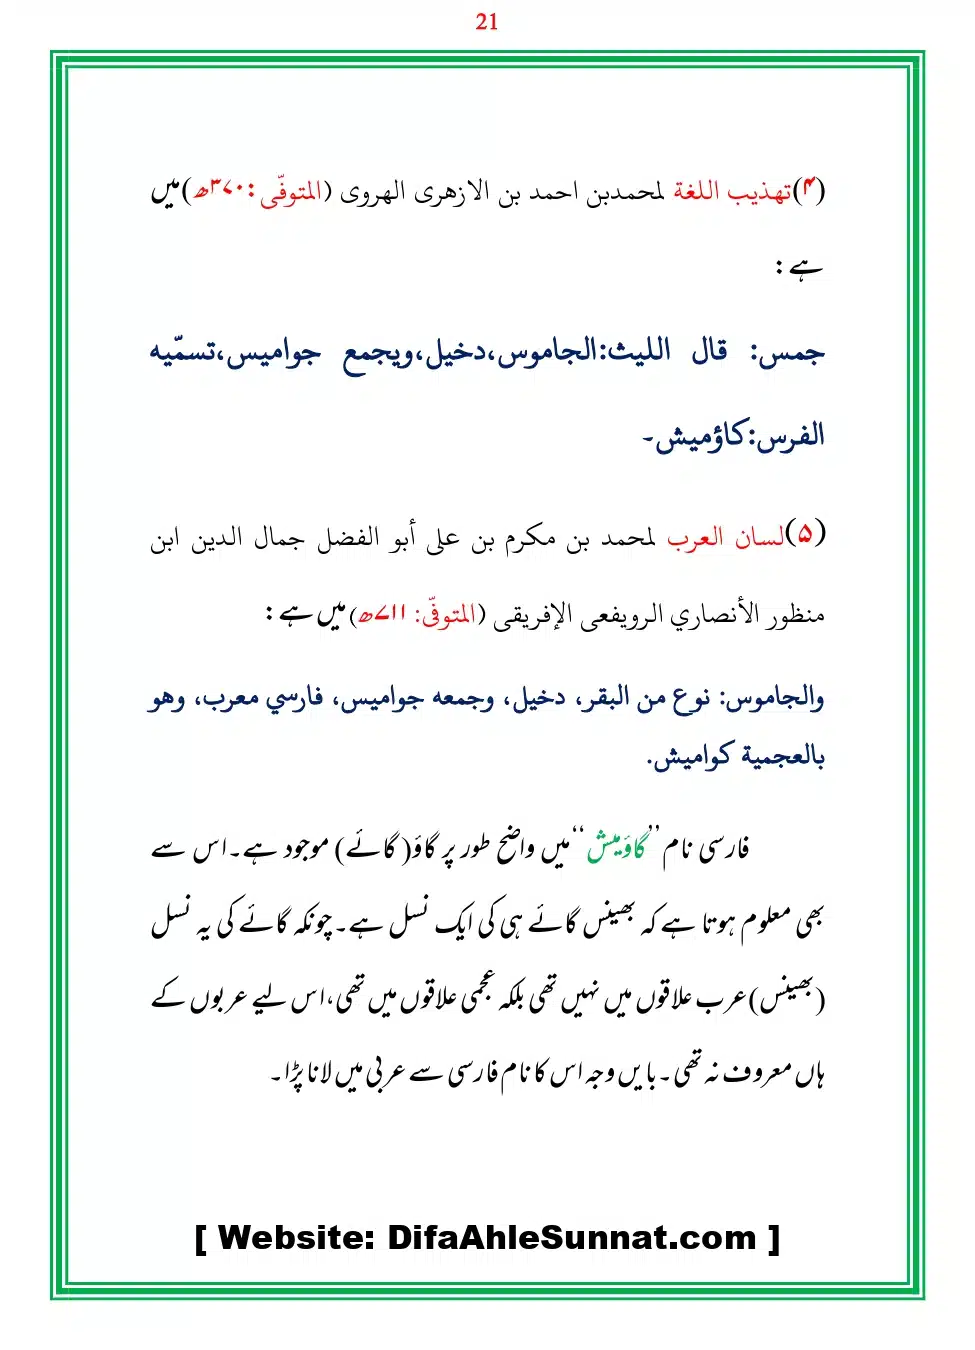 21
(۴)تهذيب اللغة لمحمدبن احمد بن الازهری الهروی (المتوفّی:۳۷۰ھ)میں
ہے:
جمس: قال الليث:الجاموس،دخيل،ويجمع جواميس،تسمّيه
الفرس:كاؤميش۔
(۵)لسان العرب لمحمد بن مکرم بن علی أبو الفضل جمال الدین ابن
منظور الأنصاري الرویفعی الإفریقی (المتوفّی: ۷۱۱ھ)میں ہے:
والجاموس: نوع من البقر، دخيل، وجمعه جواميس، فارسي معرب، وهو
بالعجمية كواميش.
فارسی نام ’’گاؤمیش‘‘میں واضح طور پر گاؤ(گائے) موجود ہے۔اس سے
بھی معلوم ہوتا ہے کہ بھینس گائے ہی کی ایک نسل ہے۔چونکہ گائے کی یہ نسل
(بھینس)عرب علاقوں میں نہیں تھی بلکہ عجمی علاقوں میں تھی،اس لیے عربوں کے
ہاں معروف نہ تھی۔بایں وجہ اس کا نام فارسی سے عربی میں لانا پڑا۔
[ Website: DifaAhleSunnat.com ]